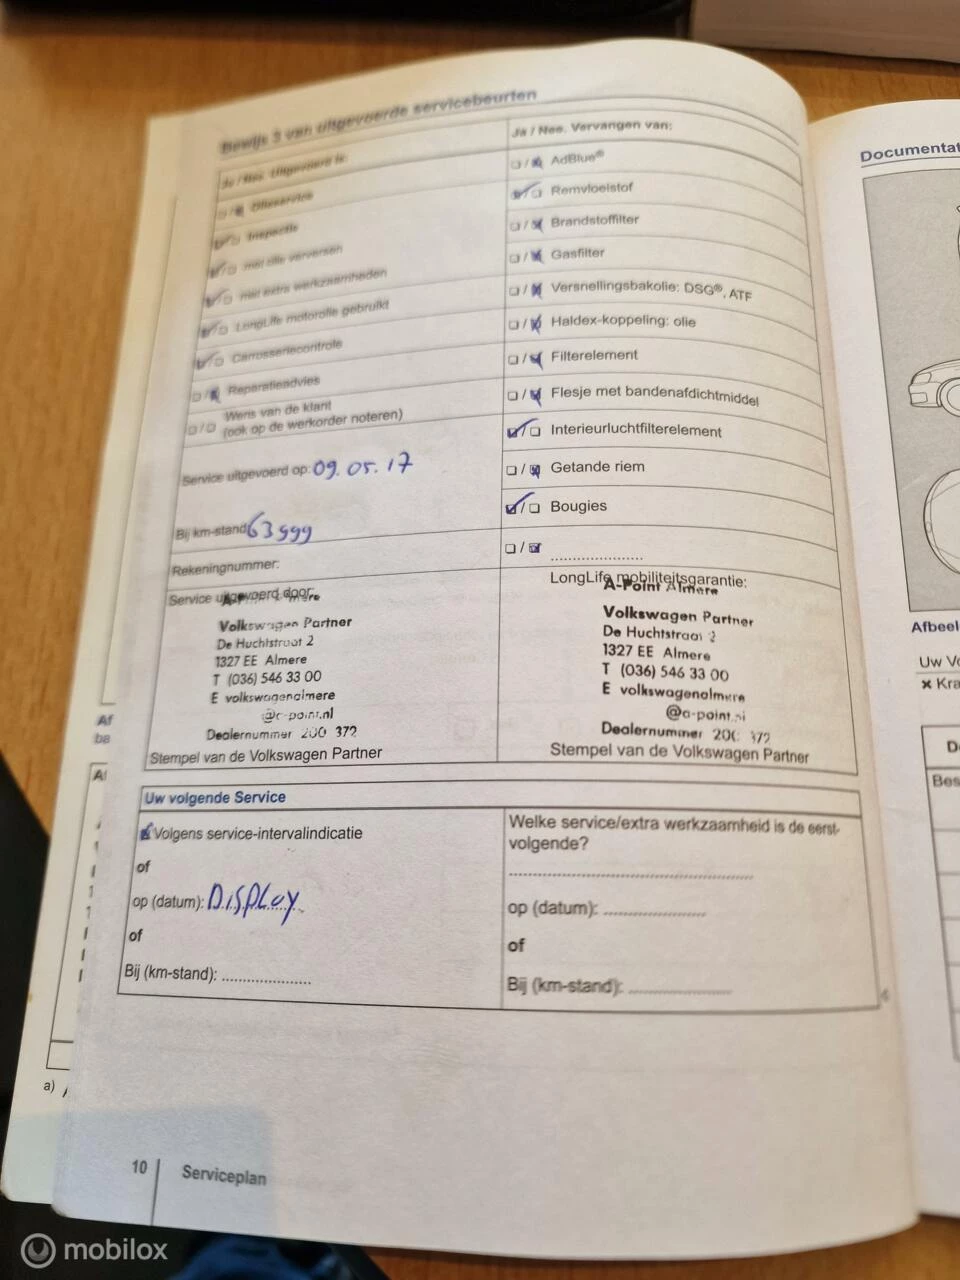 Bewijs 3 van uitgevoerde servicebeurten
Ja / Nee. Uitgevoerd is:
Olieservice
Inspectie
met olie verversen
met extra werkzaamheden
LongLife motorolie gebruikt
Carrosseriecontrole
Reparatieadvies
Wens van de klant
(ook op de werkorder noteren)
Service uitgevoerd op: 09.05.17
Bij km-stand 63999
Rekeningnummer:
Service uitgevoerd door:
Volkswagen Partner
De Huchtstraat 2
1327 EE Almere
T (036) 546 33 00
E volkswagenalmere
@a-point.nl
Dealernummer 200 372
Stempel van de Volkswagen Partner
Ja / Nee. Vervangen van:
AdBlue®
Remvloeistof
Brandstoffilter
Gasfilter
Versnellingsbakolie: DSG®, ATF
Haldex-koppeling: olie
Filterelement
Flesje met bandenafdichtmiddel
Interieurluchtfilterelement
Getande riem
Bougies
LongLife mobiliteitsgarantie:
A-Point Almere
Volkswagen Partner
De Huchtstraat 2
1327 EE Almere
T (036) 546 33 00
E volkswagenalmere
@a-point.nl
Dealernummer 200 372
Stempel van de Volkswagen Partner
Uw volgende Service
Volgens service-intervalindicatie
of
op (datum): Display
of
Bij (km-stand):
Welke service/extra werkzaamheid is de eerst-
volgende?
op (datum):
of
Bij (km-stand):
10 Serviceplan
a)
Documentat
Afbeel
Uw Vo
× Kra
Bes
mobilox